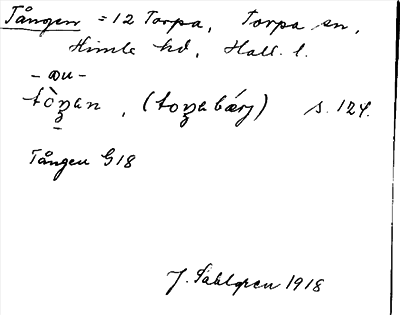 Tången = 12 Torpa, Torpa sn,
Himle hd, Hall. l.
- au -
tòŋən, (toŋəbærj) s. 124.
Tången G18
J. Sahlgren 1918